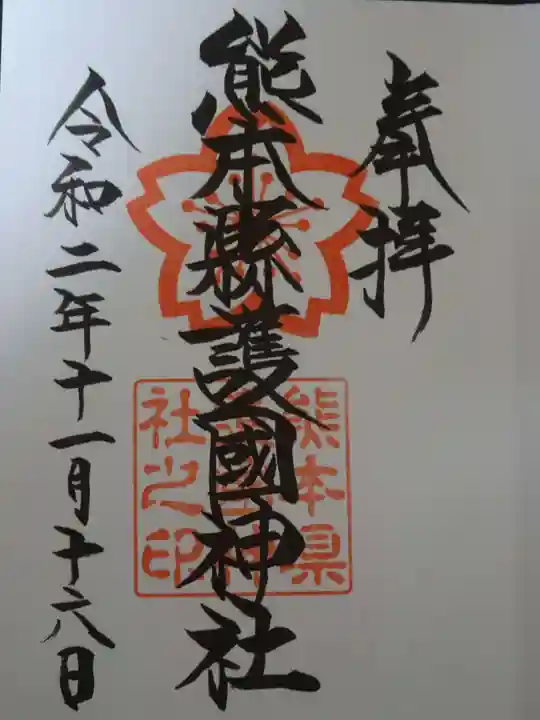 奉拝
熊本縣護國神社
令和二年十一月十六日
熊本県
護国神
社之印